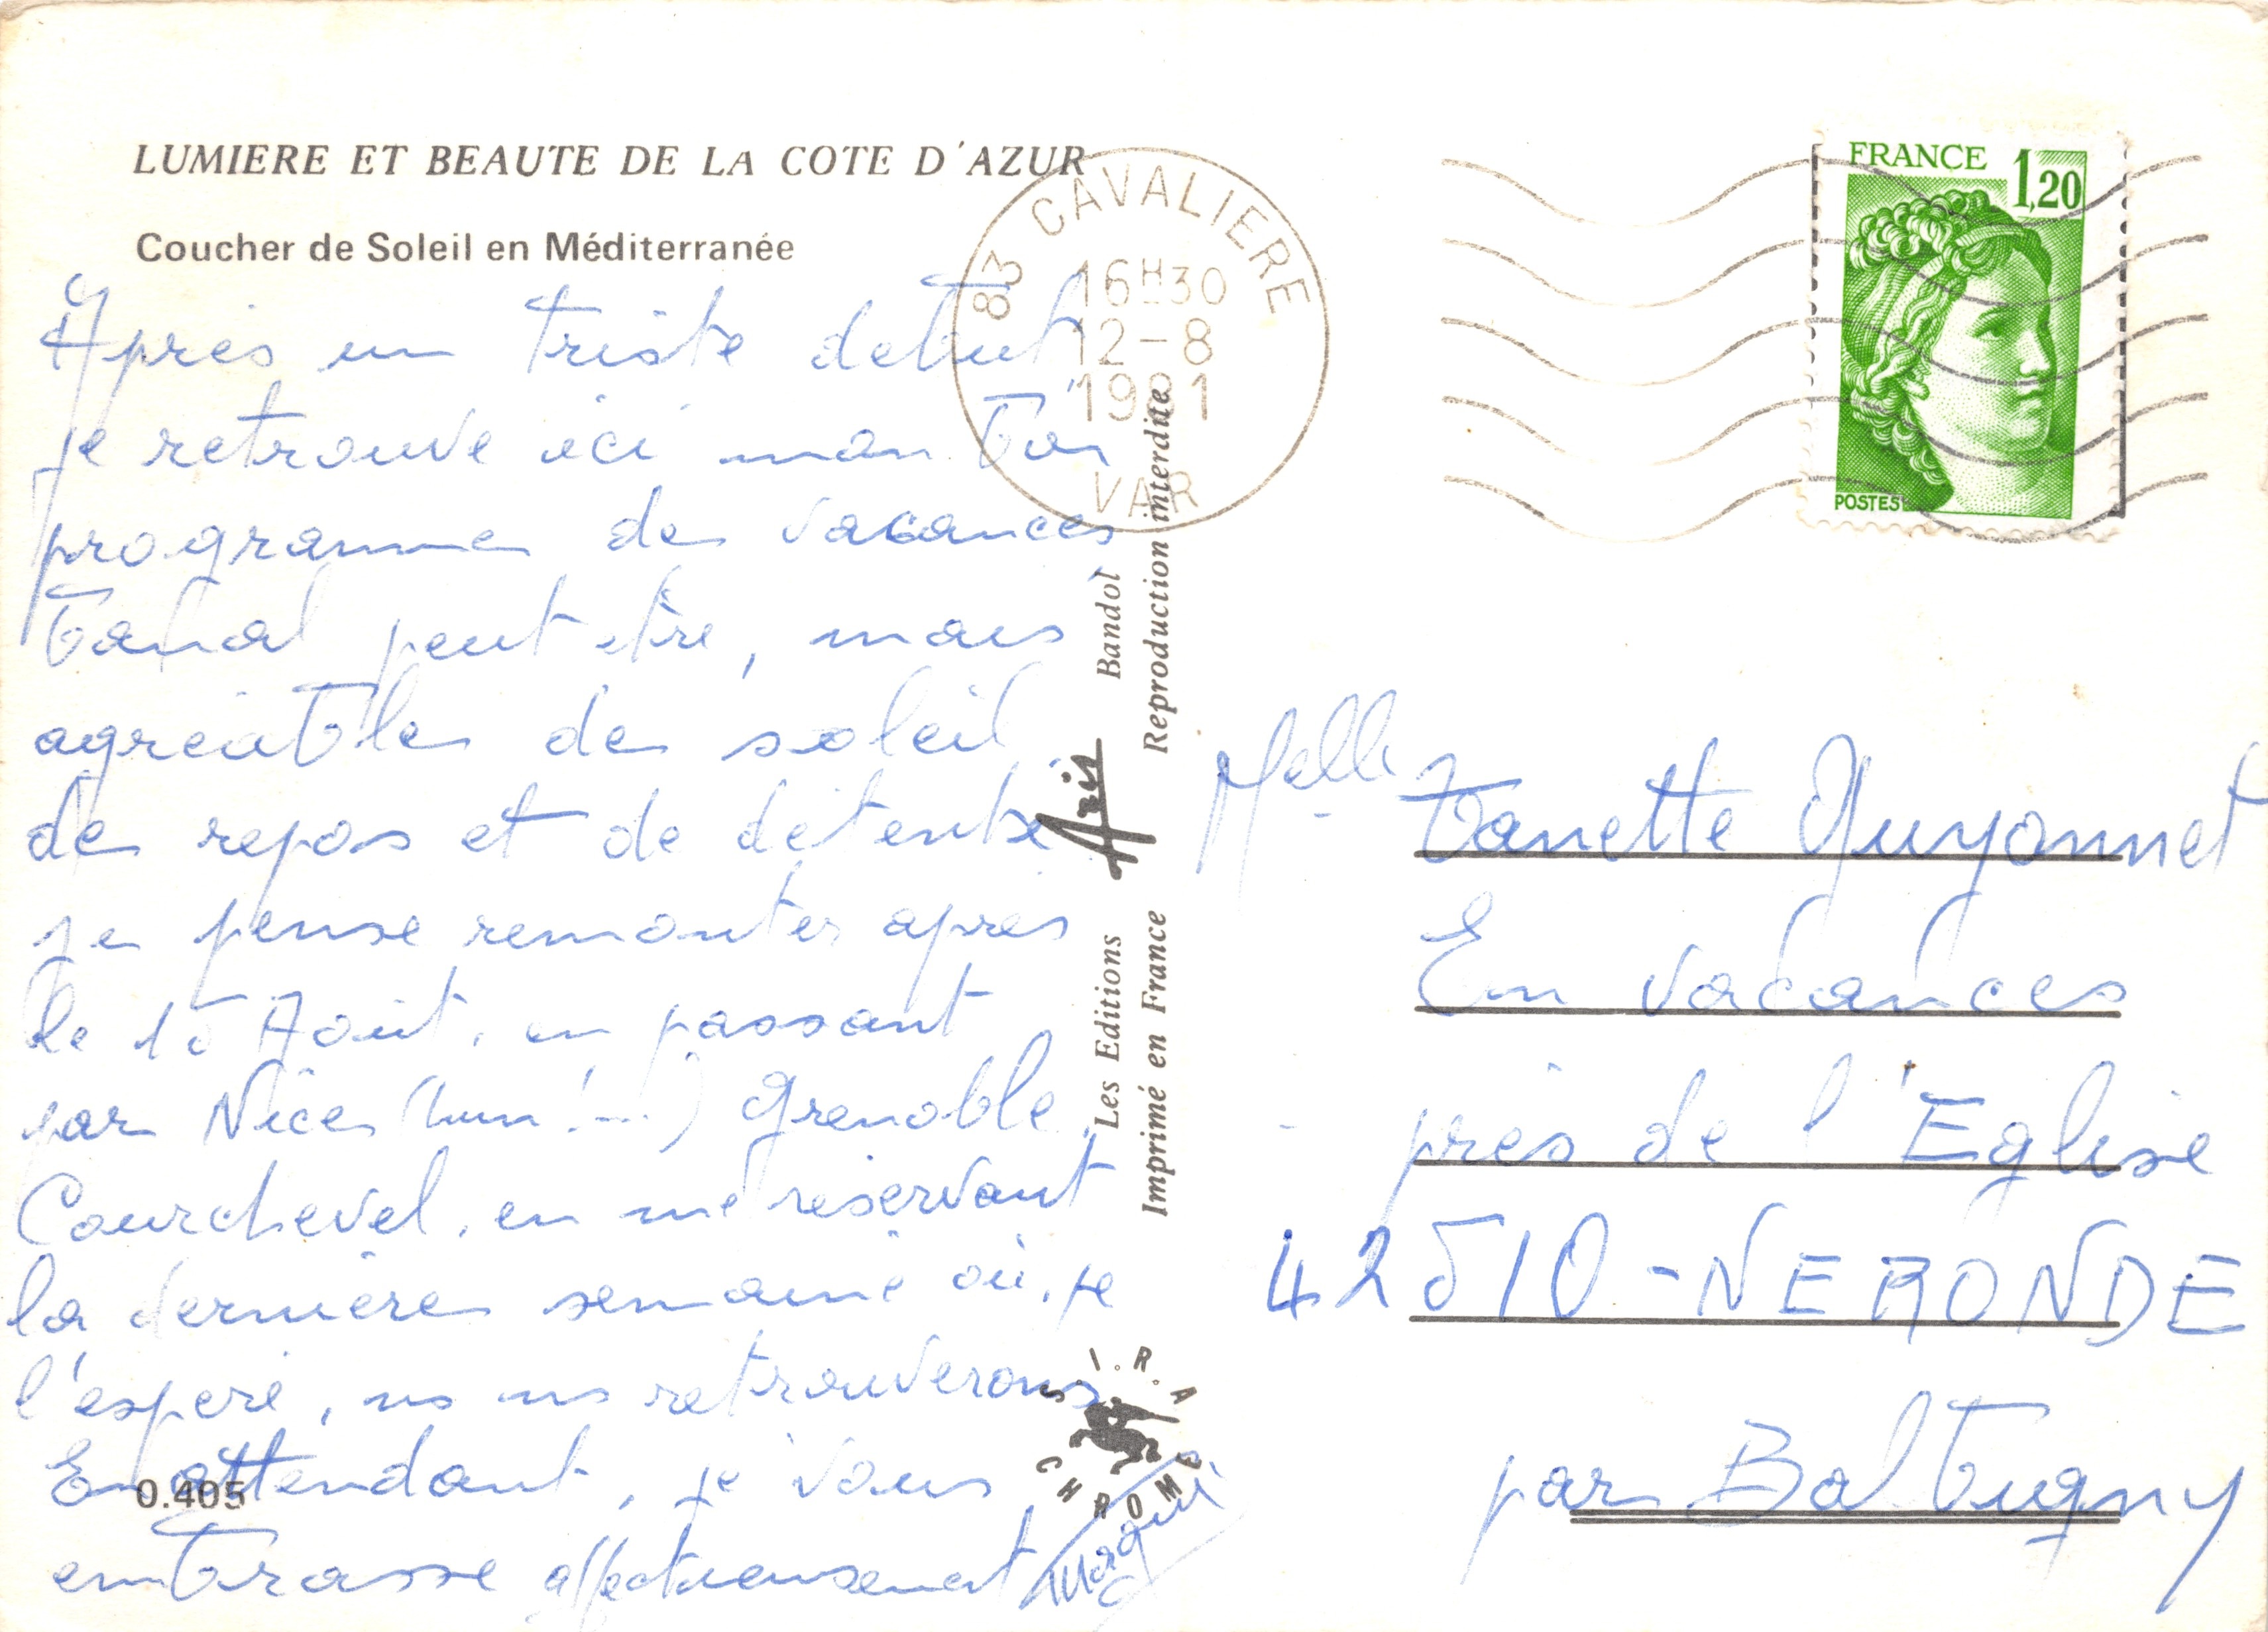 LUMIERE ET BEAUTE DE LA COTE D'AZUR
Coucher de Soleil en Méditerranée
Après un triste début
je retrouve ici mon bon
programme de vacances
banal peut etre, mais
agréable de soleil
de repos et de détente
je pense remonter après
le 15 Août, en passant
par Nice (hum!...) Grenoble,
Courchevel, en me réservant
la dernière semaine où, je
l'espère, ns ns retrouverons
En attendant, je vous
embrasse affectueusement
0.405
83 CAVALIERE
16H30
12-8
1981
VAR
Les Editions Aris Bandol
Imprimé en France Reproduction interdite
I.R.A
CHROME
FRANCE 1,20
POSTES
Melle Banette Guyonnet
En vacances
près de l'Eglise
42510-NERONDE
par Balbigny